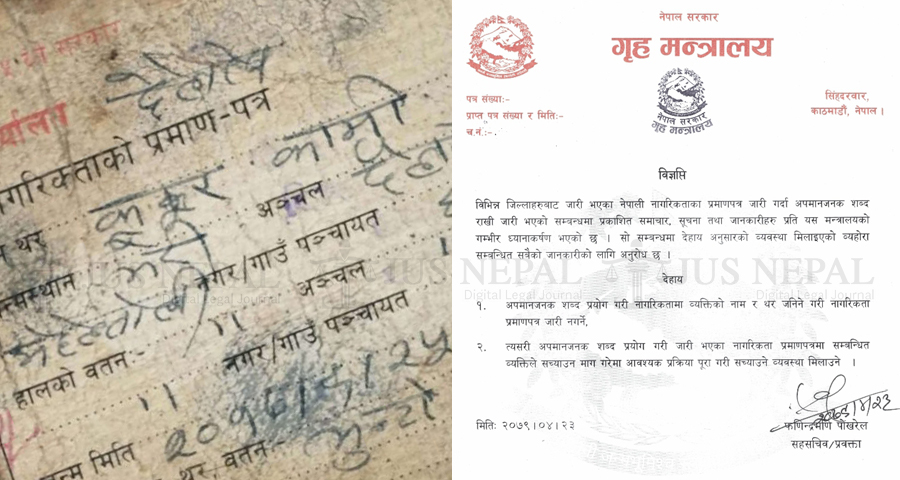 देलेख
नागरिकताको प्रमाण-पत्र
थर कुकुर कामी
अञ्चल
नगर/गाउँ पञ्चायत
अञ्चल
हालको वतन:-
नगर/गाउँ पञ्चायत
जन्म मिति
थर, वतन
नेपाल सरकार
गृह मन्त्रालय
पत्र संख्या:-
प्राप्त पत्र संख्या र मिति:-
च.नं.:-
सिंहदरवार,
काठमाडौं, नेपाल ।
नेपाल सरकार
गृह मन्त्रालय
विज्ञप्ति
विभिन्न जिल्लाहरुबाट जारी भएका नेपाली नागरिकताका प्रमाणपत्र जारी गर्दा अपमानजनक शब्द
राखी जारी भएको सम्बन्धमा प्रकाशित समाचार, सूचना तथा जानकारीहरु प्रति यस मन्त्रालयको
गम्भीर ध्यानाकर्षण भएको छ । सो सम्बन्धमा देहाय अनुसारको व्यवस्था मिलाइएको व्यहोरा
सम्बन्धित सवैको जानकारीको लागि अनुरोध छ ।
देहाय
१. अपमानजनक शब्द प्रयोग गरी नागरिकतामा व्यक्तिको नाम र थर जनिने गरी नागरिकता
प्रमाणपत्र जारी नगर्ने,
२. त्यसरी अपमानजनक शब्द प्रयोग गरी जारी भएका नागरिकता प्रमाणपत्रमा सम्बन्धित
व्यक्तिले सच्याउन माग गरेमा आवश्यक प्रक्रिया पूरा गरी सच्याउने व्यवस्था मिलाउने ।
२०७९/४/२३
मिति: २०७९।०४।२३
फणिन्द्रमणि पोखरेल
सहसचिव/प्रवक्ता
JUS NEPAL
Digital Legal Journal
JUS NEPAL
Digital Legal Journal